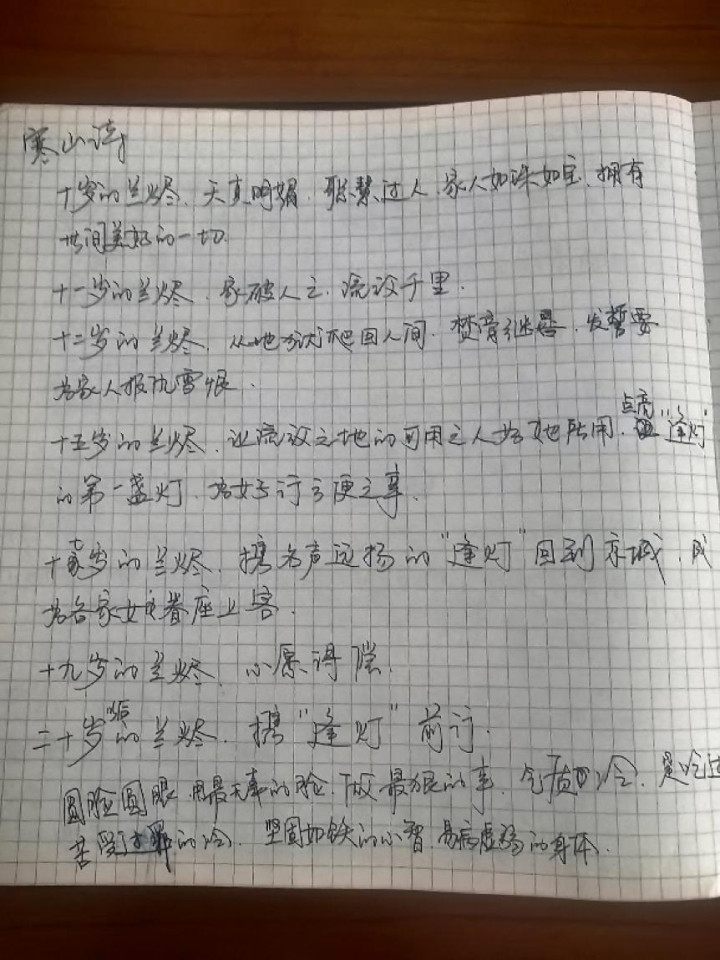 寒山诗
十岁的兰烬，天真明媚，聪慧过人，家人如珠如宝，拥有
世间美好的一切.
十一岁的兰烬，家破人亡，流放千里.
十二岁的兰烬，从地狱爬回人间，焚膏继晷，发誓要
为家人报仇雪恨.
十五岁的兰烬，让流放之地的可用之人为她所用，点亮"逢灯"
的第一盏灯，为女子行方便之事.
十七岁的兰烬，携名声远扬的"逢灯"回到京城，成
为各家女眷座上客.
十九岁的兰烬，心愿得偿.
二十岁后的兰烬，携"逢灯"前行.
圆脸圆眼，用最无辜的脸，做最狠的事，气质冷，是吃过
苦受过罪的冷，坚固如铁的心智，易病虚弱的身体.